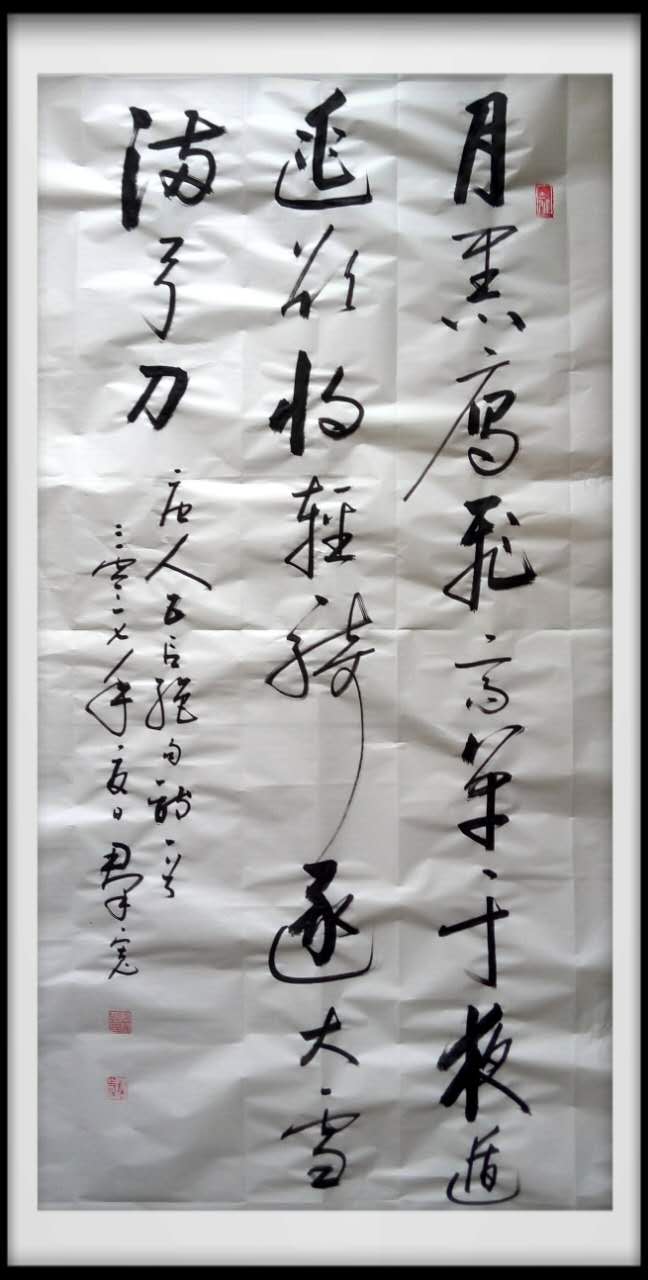 月黑雁飞高单于夜遁
逃欲将輕騎逐大雪
满弓刀
唐人五言绝句诗一首
二零一七年夏日群